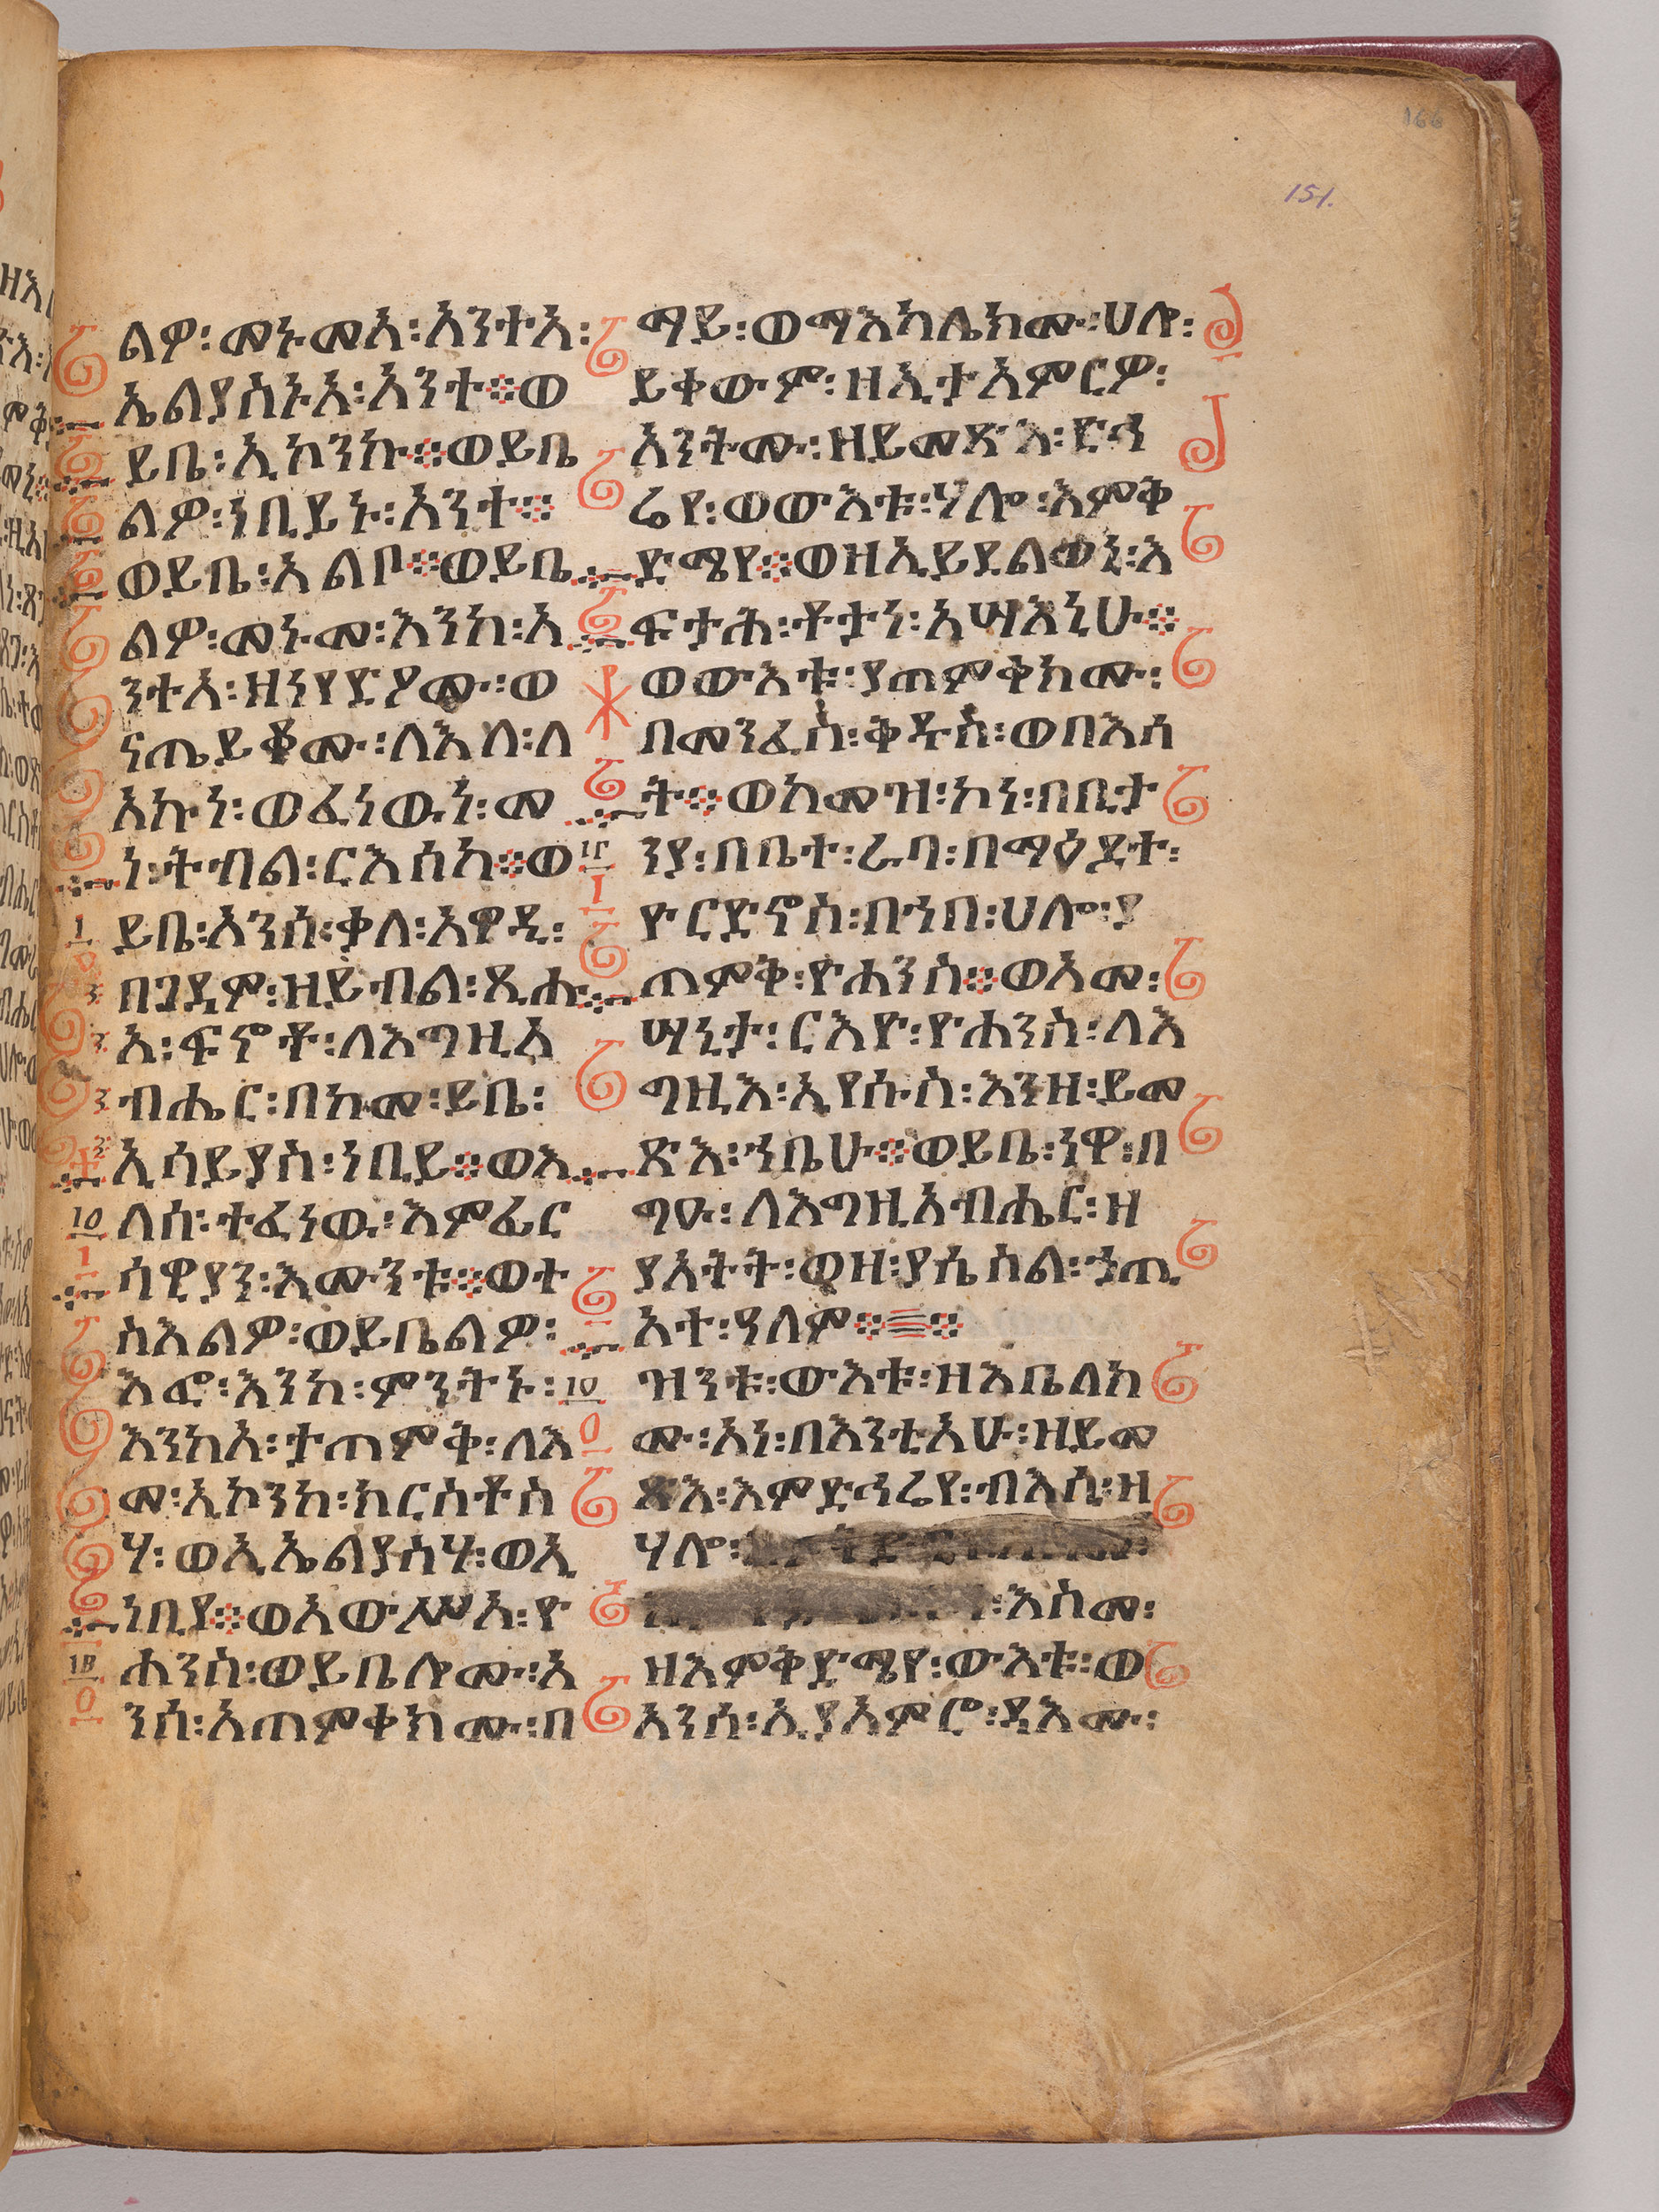 166
151.
ልዎ፡መኑመአ፡አንተአ፡
ኤልያስኑአ፡አንተ።ወ
ይቤ፡ኢኮንኩ።ወይቤ
ልዎ፡ነቢይኑ፡አንተ።
ወይቤ፡አልቦ።ወይቤ
ልዎ፡መኑመ፡እንከ፡አ
ንተአ፡ዘነየድዖሙ፡ወ
ናጤይቆሙ፡ለእለ፡ለ
አኩነ፡ወፈነዉነ፡መ
ነ፡ትብል፡ርእሰከ።ወ
ይቤ፡አንሰ፡ቃለ፡አዋዲ፡
በገዳም፡ዘይብል፡ጺሑ
አ፡ፍኖቶ፡ለእግዚአ
ብሔር፡በከመ፡ይቤ፡
ኢሳይያስ፡ነቢይ።ወእ
ለሰ፡ተፈነዉ፡እምፈር
ሳዊያን፡እሙንቱ።ወተ
ስእልዎ፡ወይቤልዎ፡
እፎ፡እንከ፡ምንትኑ፡
እንከአ፡ታጠምቅ፡ለእ
መ፡ኢኮንከ፡ክርስቶስ
ሃ፡ወኢኤልያስሃ፡ወኢ
ነቢየ።ወአውሥአ፡ዮ
ሐንስ፡ወይቤሎሙ፡አ
ንሰ፡አጠምቀክሙ፡በ
ማይ፡ወማእካሌክሙ፡ሀሎ፡
ይቀውም፡ዘኢታአምርዎ፡
አንትሙ፡ዘይመጽእ፡ድኅ
ሬየ፡ወውእቱ፡ሃሎ፡እምቅ
ድሜየ።ወዘኢይደልወኒ፡እ
ፍታሕ፡ቶታነ፡አሣእኒሁ።
ወውእቱ፡ያጠምቀክሙ፡
በመንፈስ፡ቅዱስ፡ወበእሳ
ት።ወከመዝ፡ኮነ፡በቢታ
ንያ፡በቤተ፡ራባ፡በማዕደተ፡
ዮርድኖስ፡በኀበ፡ሀሎ፡ያ
ጠምቅ፡ዮሐንስ።ወአመ፡
ሣኒታ፡ርእዮ፡ዮሐንስ፡ለእ
ግዚእ፡ኢየሱስ፡እንዘ፡ይመ
ጽእ፡ኀቤሁ።ወይቤ፡ነዋ፡በ
ግዑ፡ለእግዚአብሔር፡ዘ
ያአትት፡ወዘ፡ያሴስል፡ኃጢ
አተ፡ዓለም።
ዝንቱ፡ውእቱ፡ዘእቤለክ
ሙ፡አነ፡በእንቲአሁ፡ዘይመ
ጽእ፡እምድኅሬየ፡ብእሲ፡ዘ
ሃሎ፡
እስመ፡
ዘእምቅድሜየ፡ውእቱ፡ወ
አንሰ፡ኢያአምሮ፡ዳእሙ፡